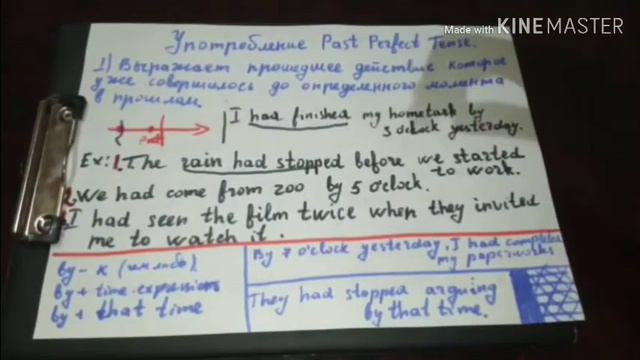 Made with KINEMASTER
Употребление Past Perfect Tense.
1) Выражает прошедшее действие которое
уже совершилось до определенного момента
в прошлом
I had finished my hometask by
5 o'clock yesterday.
Ex: 1. The rain had stopped before we started
to work.
2. We had come from zoo by 5 o'clock.
3. I had seen the film twice when they invited
me to watch it.
by - к
by + time expressions
by + that time
By 7 o'clock yesterday, I had completed
my paperworks
They had stopped arguing
by that time.